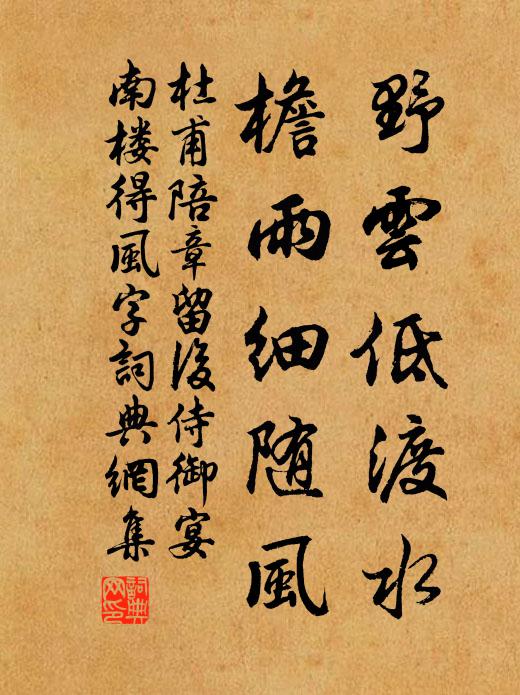 野雲低渡水
檐雨細随風
杜甫陪章留後侍御宴
南楼得風字詞典網集
詞典网印